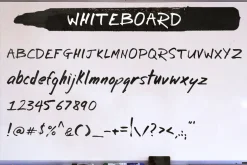 WHITEBOARD
ABCDEFGHIJKLMNOPQRSTUVWXYZ
abcdefghijklmnopqrstuvwxyz
1234567890
!@#$%^&()_-+=|\/?><,.:;"'